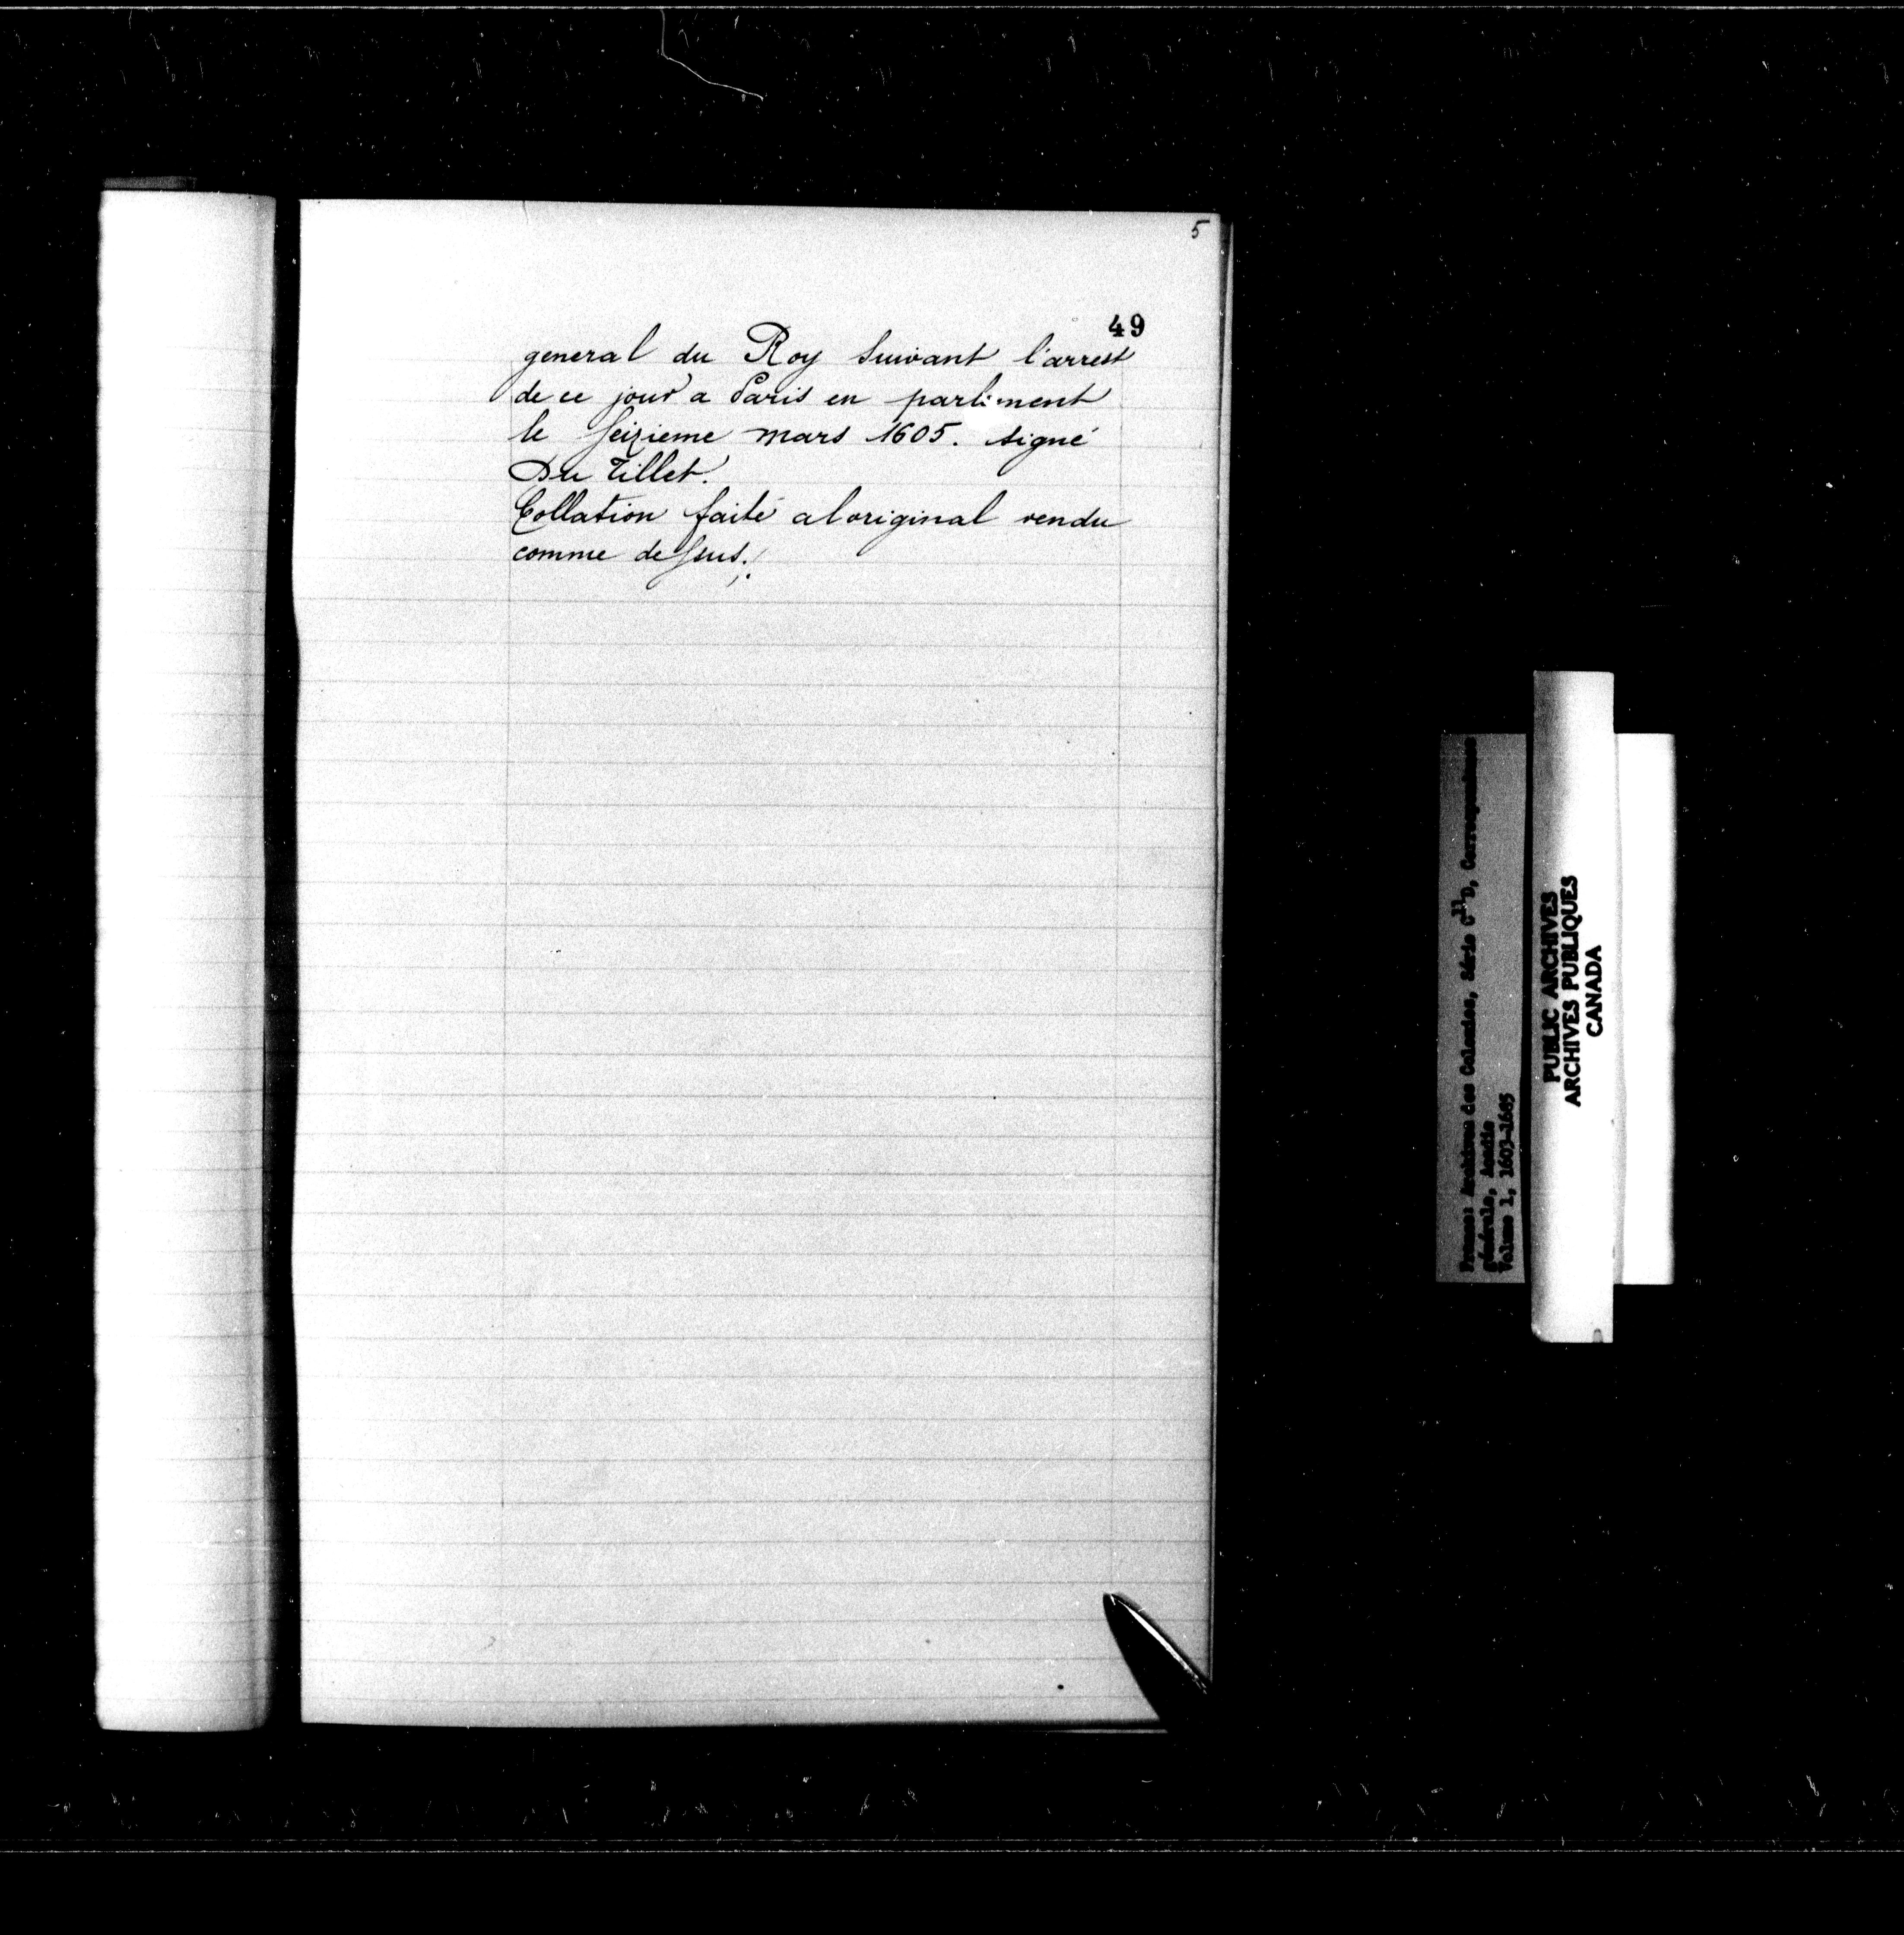 5
49
general du Roy Suivant l'arrest
de ce jour a Paris en parliment
le Seizieme mars 1605. signé
Du Tillet.
Collation faite a loriginal rendu
comme dessus.
France: Archives des Colonies, Série C11D, Correspondance
générale, Acadie
Volume 1, 1603-1685
PUBLIC ARCHIVES
ARCHIVES PUBLIQUES
CANADA